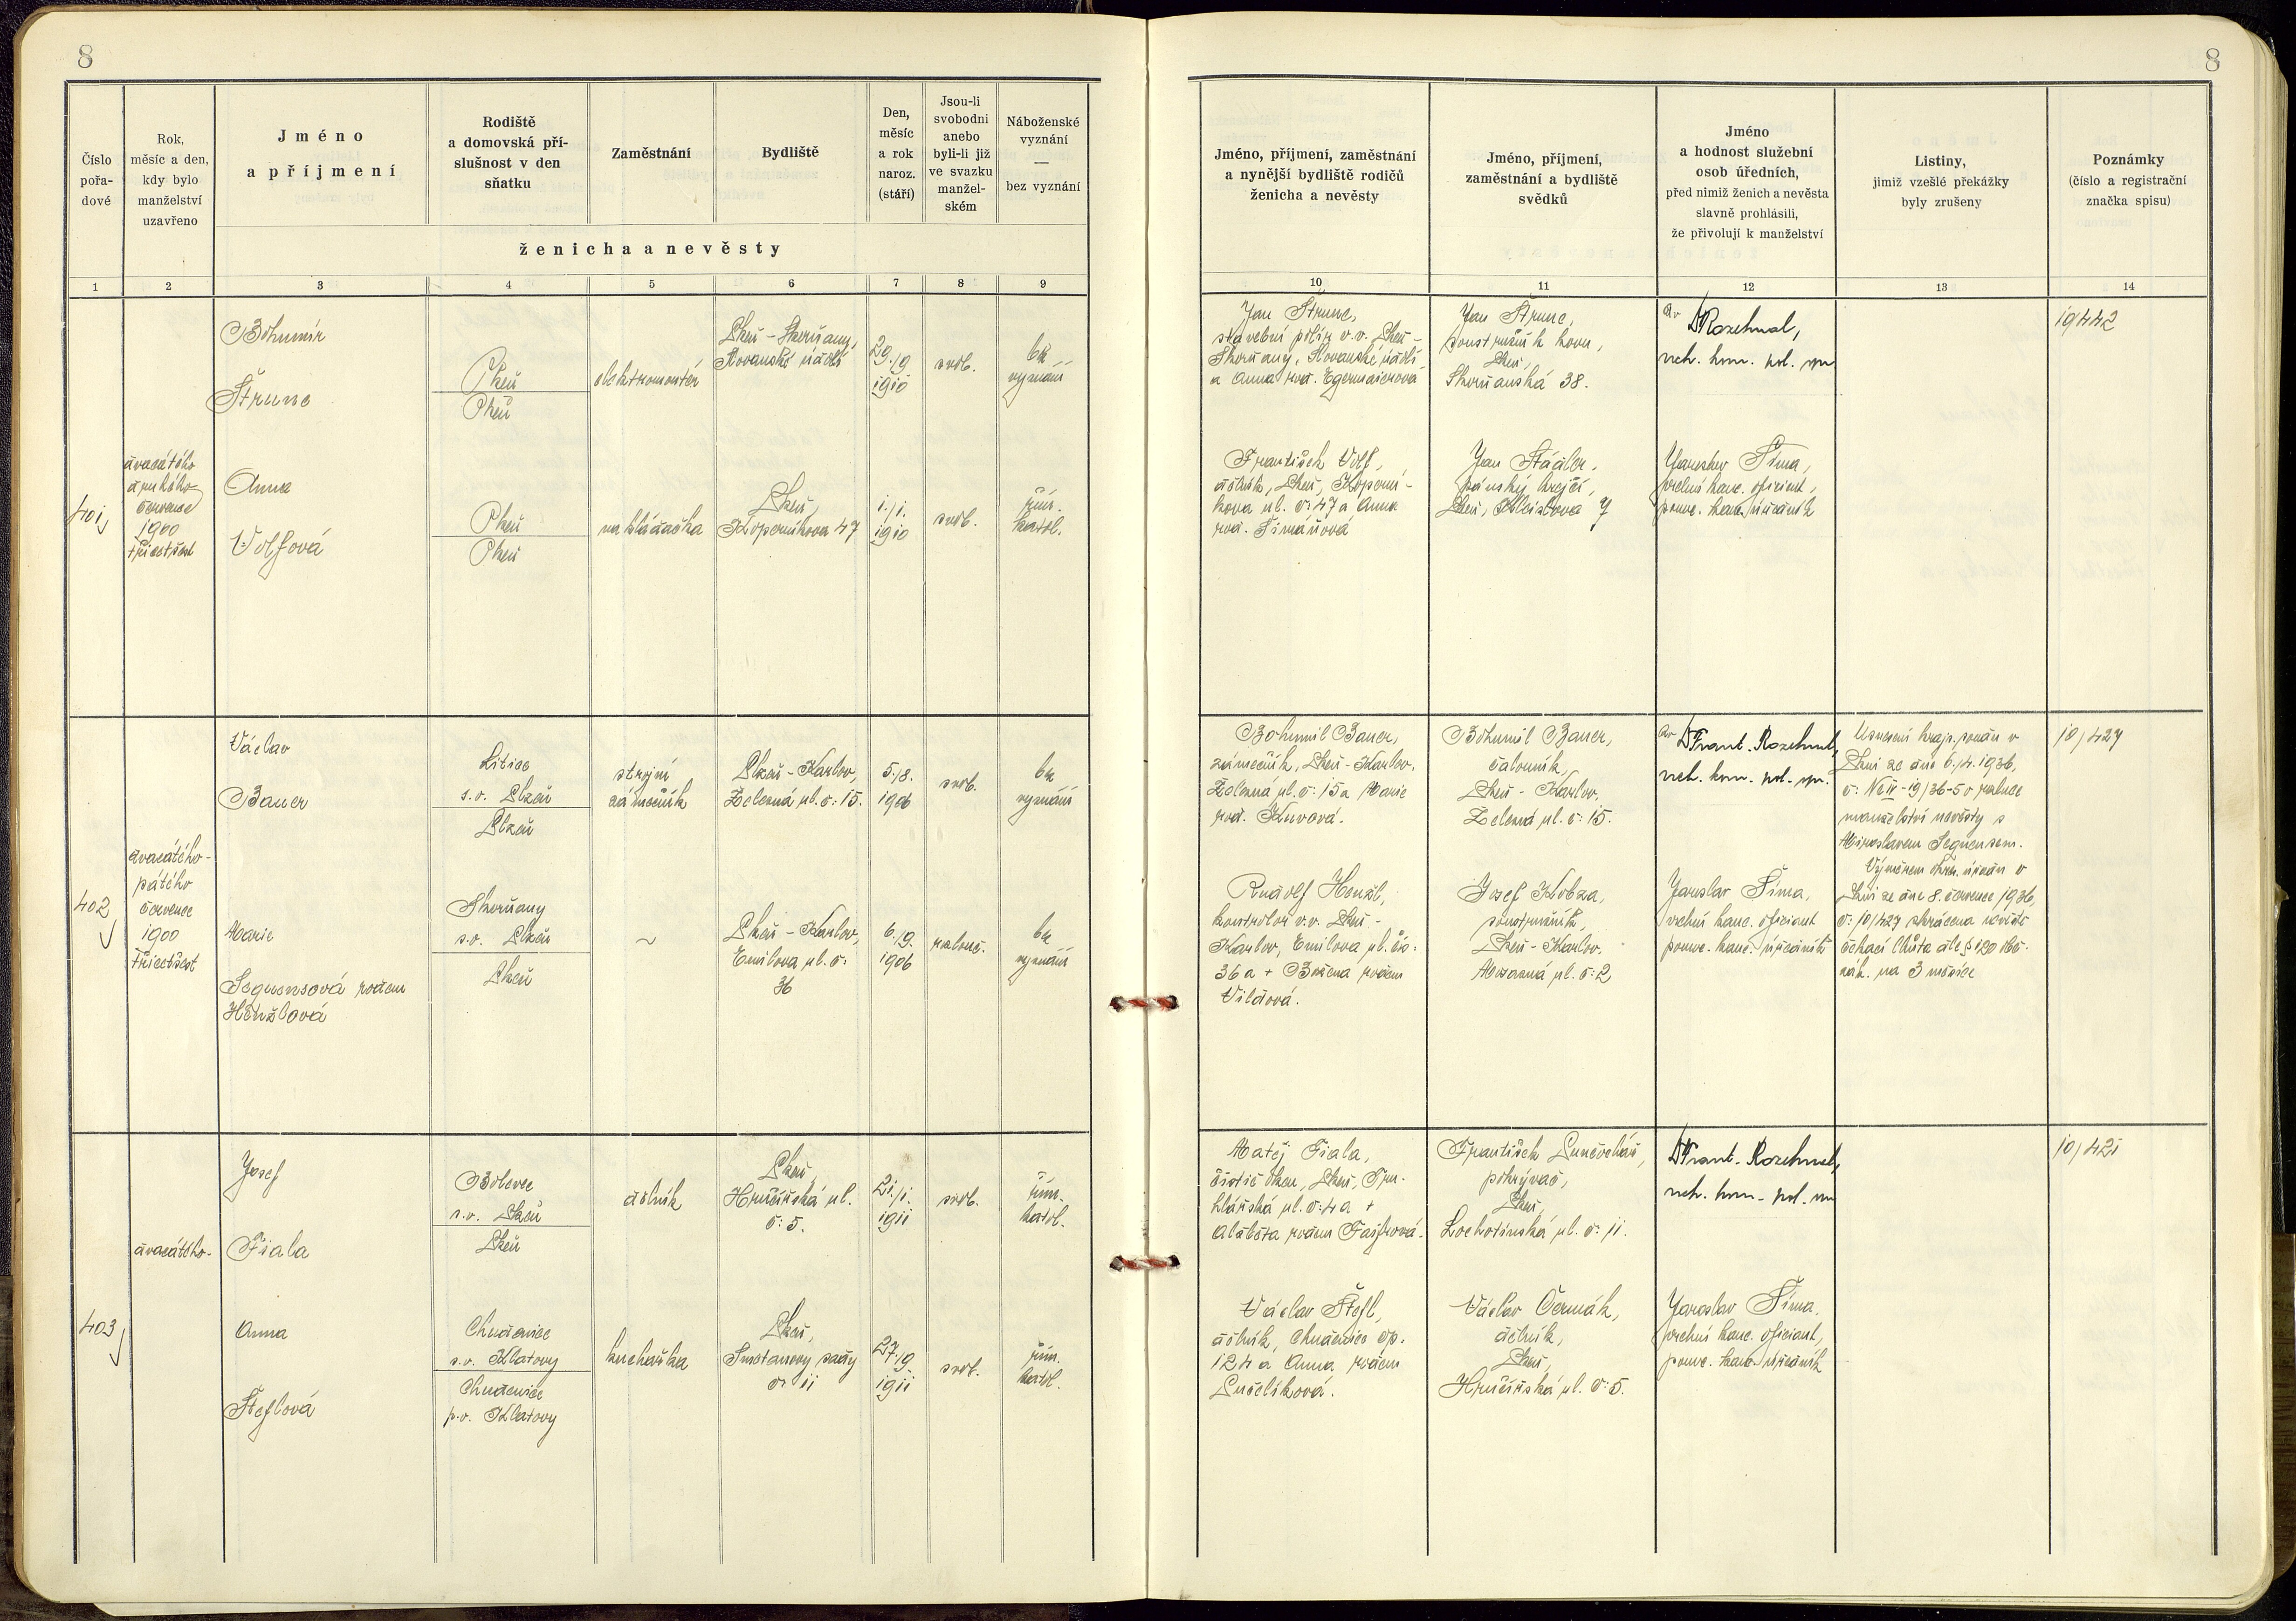 8
8
Číslo pořa- dové
Rok, měsíc a den, kdy bylo manželství uzavřeno
Jméno a příjmení
Rodiště a domovská pří- slušnost v den sňatku
Zaměstnání
Bydliště
Den, měsíc a rok naroz. (stáří)
Jsou-li svobodni anebo byli-li již ve svazku manžel- ském
Náboženské vyznání — bez vyznání
ženicha a nevěsty
1 2 3 4 5 6 7 8 9
Jméno, příjmení, zaměstnání a nynější bydliště rodičů ženicha a nevěsty
Jméno, příjmení, zaměstnání a bydliště svědků
Jméno a hodnost služební osob úředních, před nimiž ženich a nevěsta slavně prohlásili, že přivolují k manželství
Listiny, jimiž vzešlé překážky byly zrušeny
Poznámky (číslo a registrační značka spisu)
10 11 12 13 14
401
dvacátého
druhého
července
1900
třicetšest
Bohumír
Štrunc
Plzeň
Plzeň
elektromontér
Plzeň - Skvrňany,
Slovanské údolí
29./9.
1910
svob.
bez
vyznání
Anna
Volfová
Plzeň
Plzeň
nakládačka
Plzeň,
Koperníkova 47
1./1.
1910
svob.
řím.
katol.
Jan Štrunc,
stavební polír v.v. Plzeň -
Skvrňany, Slovanské údolí
a Anna roz. Egermaierová
Jan Štrunc,
soustružník kovu,
Plzeň,
Skvrňanská 38.
Dr Rozehnal,
19442
František Volf,
dělník, Plzeň, Koperní-
kova ul. č: 47 a Anna
roz. Šimáňová
Jan Städler,
pánský krejčí,
Plzeň, Kleislova 7
Jaroslav Šíma,
vrchní kanc. oficiant,
pověř. kanc. úředník
402
dvacátého-
pátého
července
1900
třicetšest
Václav
Bauer
Litice
s.o. Plzeň
Plzeň
strojní
zámečník
Plzeň - Karlov,
Zelená ul. č: 15.
5./8.
1906
svob.
bez
vyznání
Marie
Sequensová rodem
Henžlová
Skvrňany
s.o. Plzeň
Plzeň
~
Plzeň - Karlov,
Emilova ul. č:
36
6./9.
1906
rozlouč.
bez
vyznání
Bohumil Bauer,
zámečník, Plzeň - Karlov,
Zelená ul. č: 15 a Marie
roz.
Bohumil Bauer,
čalouník,
Plzeň - Karlov,
Zelená ul. č: 15.
Dr Frant. Rozehnal,
Usnesení kraj. soudu v
Plzni ze dne 6./4. 1936,
o rozluce
manželství nevěsty s
Miroslavem Sequensem.
Výměrem okres. úřadu v
Plzni ze dne 8. července 1936,
č: 10/427 zkrácena nevěstě
čekací lhůta dle § 120
na 3 měsíce
10/427
Rudolf Henžl,
kontrolor v.v. Plzeň -
Karlov, Emilova ul. čís:
36 a + Božena rodem
Vildová.
Josef Kobza,
soustružník,
Plzeň - Karlov,
Mozartná ul. č: 2
Jaroslav Šíma,
vrchní kanc. oficiant
pověř. kanc. úředník
403
dvacátého-
Josef
Fiala
Bolevec
s.o. Plzeň
Plzeň
dělník
Plzeň,
Hruškářská ul.
č: 5.
21./1.
1911
svob.
řím.
katol.
Anna
Šteflová
Chudenice
s.o. Klatovy
Chudenice
p.o. Klatovy
kuchařka
Plzeň,
Smetanovy sady
č: 11
27./9.
1911
svob.
řím.
katol.
Matěj Fiala,
čistič oken, Plzeň, Tru-
hlářská ul. č: 4 a +
Alžběta rodem Faifrová.
František
pokrývač,
Plzeň,
Lochotínská ul. č: 11.
Dr Frant. Rozehnal,
10/421
Václav Štefl,
dělník, Chudenice čp.
124 a Anna rodem
Jaroslav Šíma,
vrchní kanc. oficiant,
pověř. kanc. úředník
Václav Čermák,
dělník,
Plzeň,
Hruškářská ul. č: 5.